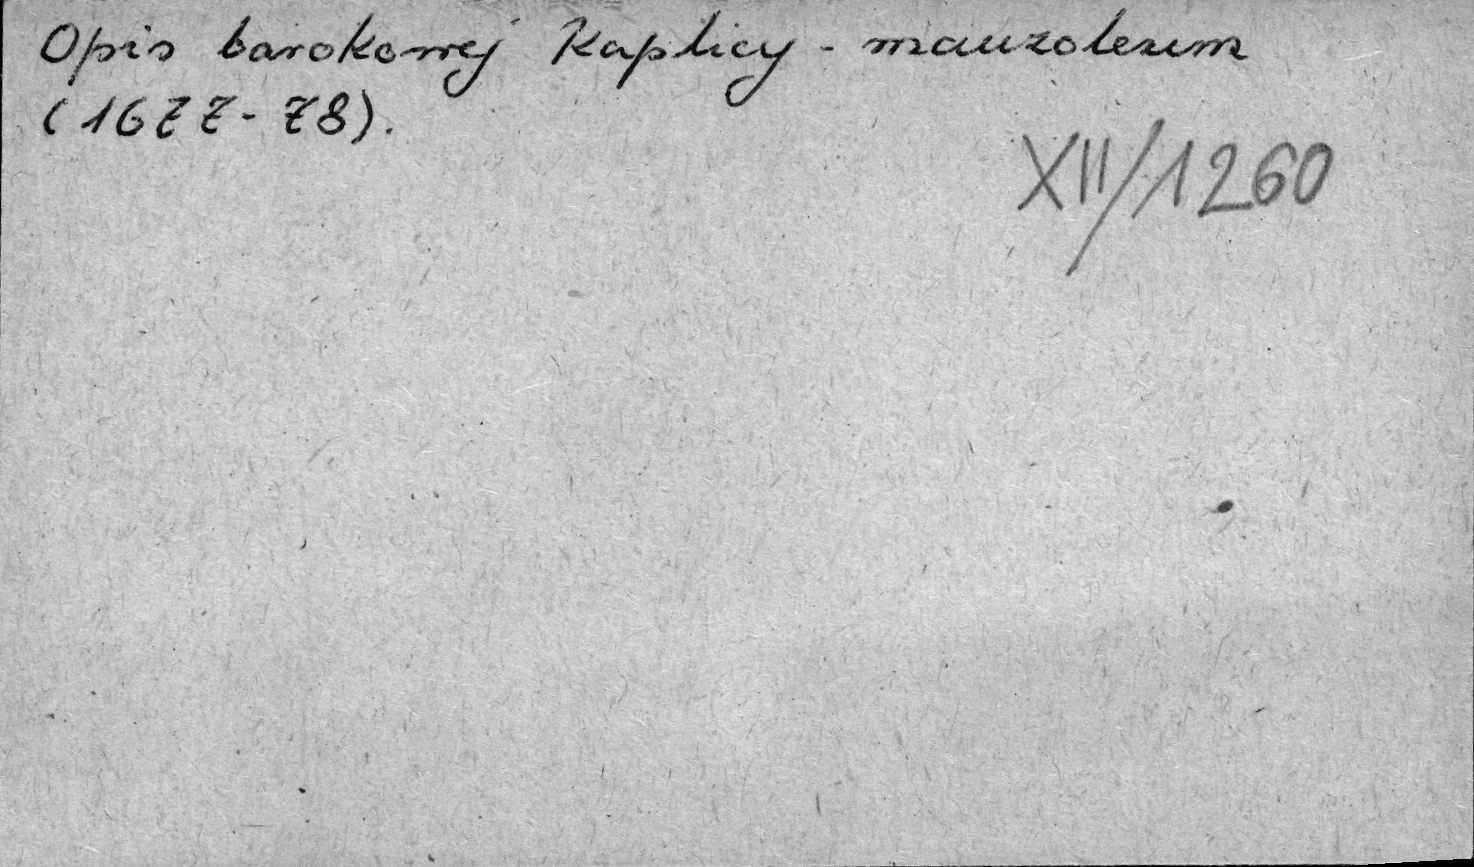 Opis barokowej Kaplicy - mauzoleum
(1677-78).
XII/1260